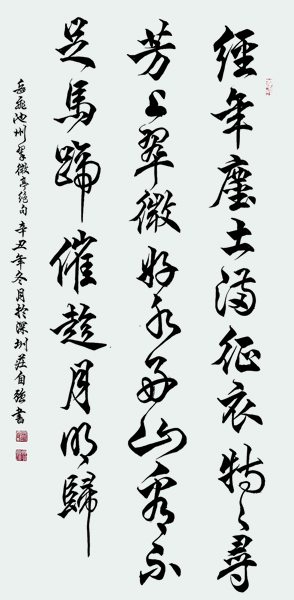 經年塵土滿征衣特々尋
芳上翠微好水好山看不
足馬蹄催趁月明歸
岳飛池州翠微亭絕句 辛丑年冬月於深圳莊自強書